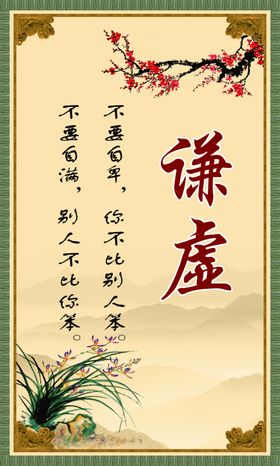 谦虚
不要自卑，你不比别人笨。
不要自满，别人不比你笨。